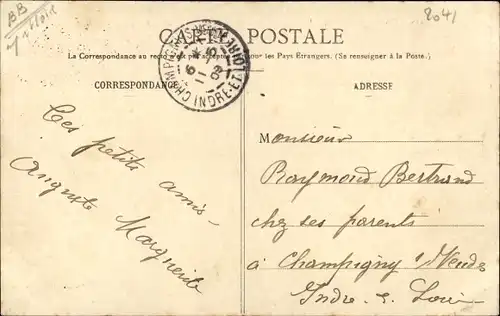 BB
2041
CARTE POSTALE
La Correspondance au recto n'est pas acceptée pour les Pays Étrangers. (Se renseigner à la Poste.)
CORRESPONDANCE
ADRESSE
CHAMPIGNY
6 - 11
08
INDRE-ET-LOIRE
Ces petits amis
Auguste Marguerite
Monsieur
Raymond Bertrand
chez ses parents
à Champigny s/Veude
Indre & Loire